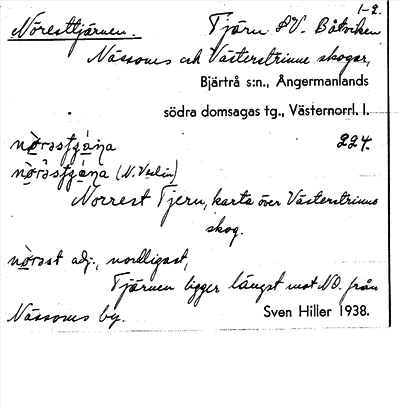 1-2.
Noresttjärnen. Tjärn SV. Båtviken
Nässoms och Västerstrinne skogar,
Bjärtrå s:n., Ångermanlands
södra domsagas tg., Västernorrl. l.
224.
(N. Veslin)
Norrest Tjern, karta över Västerstrinns
skog.
nòrəst adj., nordligast,
Tjärnen ligger längst mot NO. från
Nässoms by. Sven Hiller 1938.